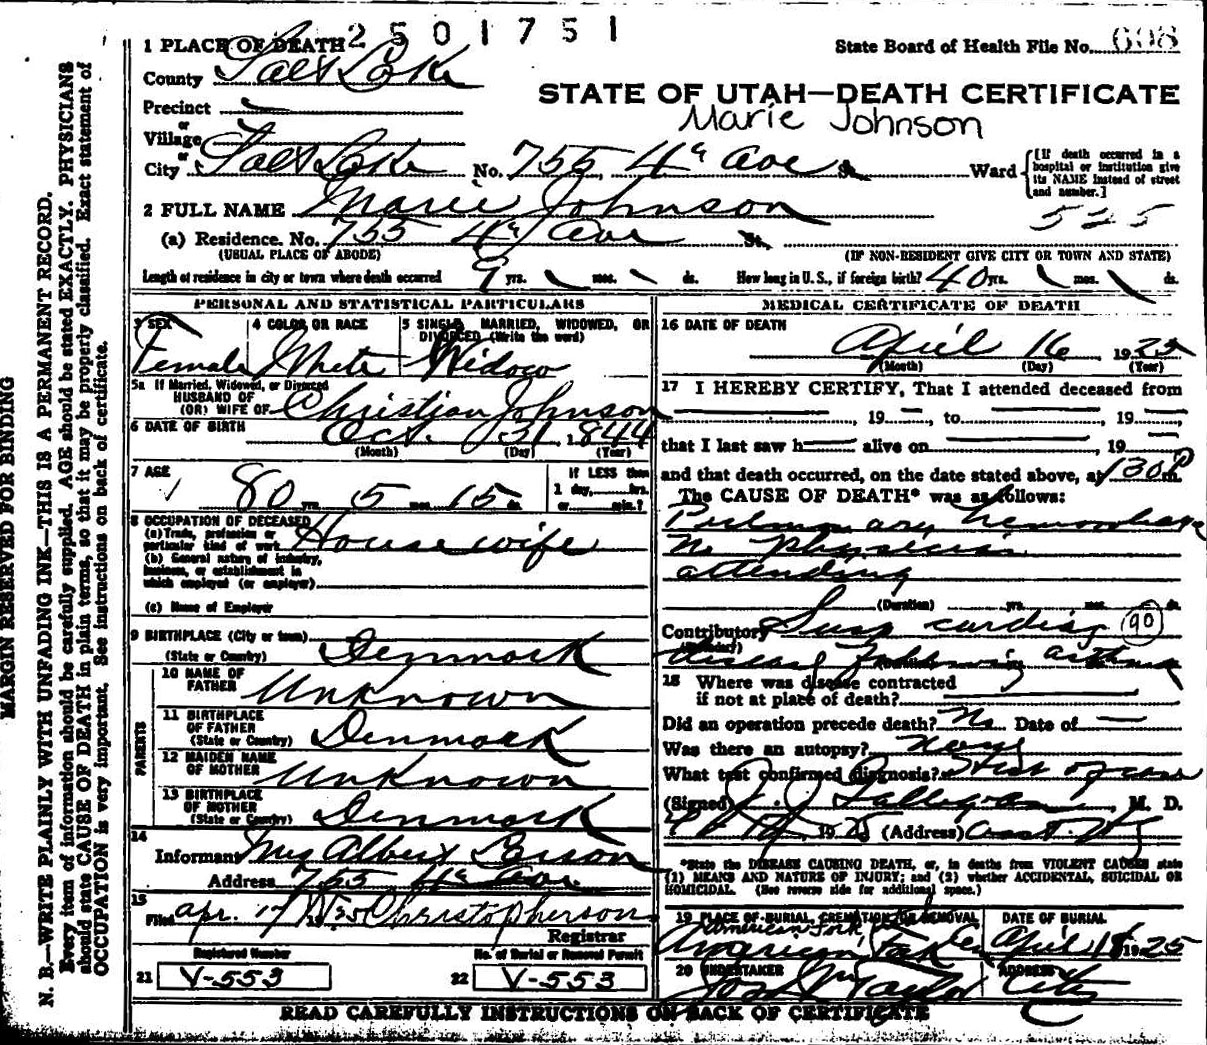 2501751
State Board of Health File No. 698
1 PLACE OF DEATH
County Salt Lake
STATE OF UTAH—DEATH CERTIFICATE
Precinct
Marie Johnson
or
Village
or
City Salt Lake No. 755 4th Ave St. Ward
[If death occurred in a hospital or institution give its NAME instead of street and number.]
2 FULL NAME Marie Johnson
525
(a) Residence. No. 755 4th Ave St.
(USUAL PLACE OF ABODE) (IF NON-RESIDENT GIVE CITY OR TOWN AND STATE)
Length of residence in city or town where death occurred 9 yrs. mos. ds. How long in U.S., if foreign birth? 40 yrs. mos. ds.
PERSONAL AND STATISTICAL PARTICULARS
3 SEX Female
4 COLOR OR RACE White
5 SINGLE, MARRIED, WIDOWED, OR DIVORCED (Write the word) Widow
5a If Married, Widowed, or Divorced
HUSBAND OF
(OR) WIFE OF Christian Johnson
6 DATE OF BIRTH Oct. 31 1844
(Month) (Day) (Year)
7 AGE 80 yrs. 5 mos. 15 ds.
If LESS than 1 day, hrs. or min.?
8 OCCUPATION OF DECEASED
(a) Trade, profession or particular kind of work Housewife
(b) General nature of industry, business, or establishment in which employed (or employer)
(c) Name of Employer
9 BIRTHPLACE (City or town)
(State or Country) Denmark
PARENTS
10 NAME OF FATHER Unknown
11 BIRTHPLACE OF FATHER
(State or Country) Denmark
12 MAIDEN NAME OF MOTHER Unknown
13 BIRTHPLACE OF MOTHER
(State or Country) Denmark
14
Informant Mrs Albert
Address 755 4th Ave.
15
Filed Apr. 17 1925 Christopherson
Registrar
Registered Number No. of Burial or Removal Permit
21 V-553 22 V-553
MEDICAL CERTIFICATE OF DEATH
16 DATE OF DEATH
April 16 1925
(Month) (Day) (Year)
17 I HEREBY CERTIFY, That I attended deceased from
, 19 , to , 19
that I last saw h alive on , 19
and that death occurred, on the date stated above, at 130 P m.
The CAUSE OF DEATH* was as follows:
Pulmonary hemorrhage
No physician
attending
(Duration) yrs. mos. ds.
Contributory Susp cardiac 90
disease following asthma
18 Where was disease contracted
if not at place of death?
Did an operation precede death? No Date of
Was there an autopsy? none
What test confirmed diagnosis? Hist of case
(Signed) , M. D.
1925 (Address)
*State the DISEASE CAUSING DEATH, or, in deaths from VIOLENT CAUSES state
(1) MEANS AND NATURE OF INJURY; and (2) whether ACCIDENTAL, SUICIDAL OR
HOMICIDAL. (See reverse side for additional space.)
19 PLACE OF BURIAL, CREMATION OR REMOVAL DATE OF BURIAL
American Fork
American Fork Cem April 18 1925
20 UNDERTAKER ADDRESS
Jos Wm Taylor City
READ CAREFULLY INSTRUCTIONS ON BACK OF CERTIFICATE
MARGIN RESERVED FOR BINDING
N. B.—WRITE PLAINLY WITH UNFADING INK—THIS IS A PERMANENT RECORD.
Every item of information should be carefully supplied. AGE should be stated EXACTLY. PHYSICIANS
should state CAUSE OF DEATH in plain terms, so that it may be properly classified. Exact statement of
OCCUPATION is very important. See instructions on back of certificate.